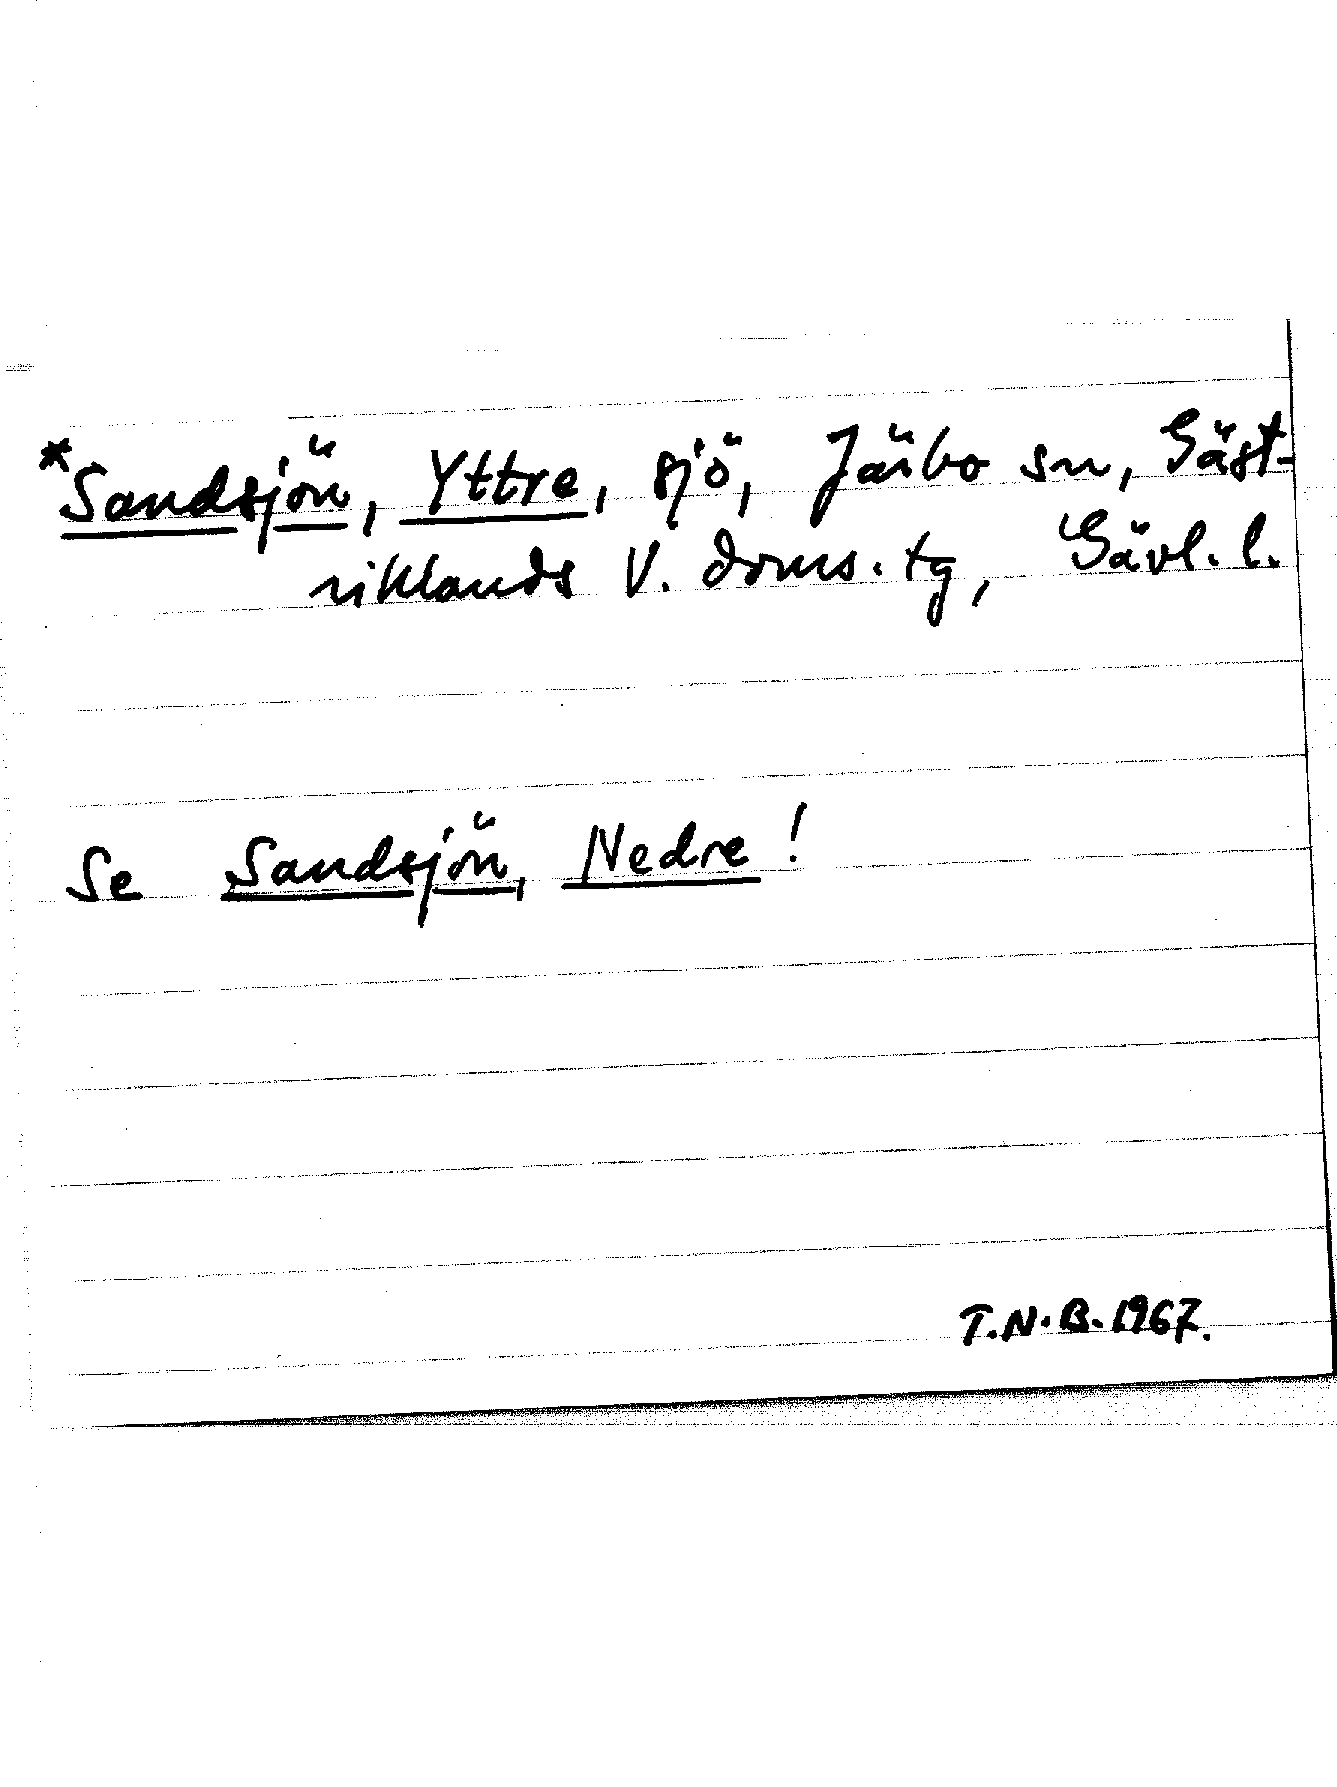 *Sandsjön, Yttre, sjö, Järbo sn, Gäst-
riklands V. doms. tg, Gävl. l.
Se Sandsjön, Nedre!
T.N.B. 1967.